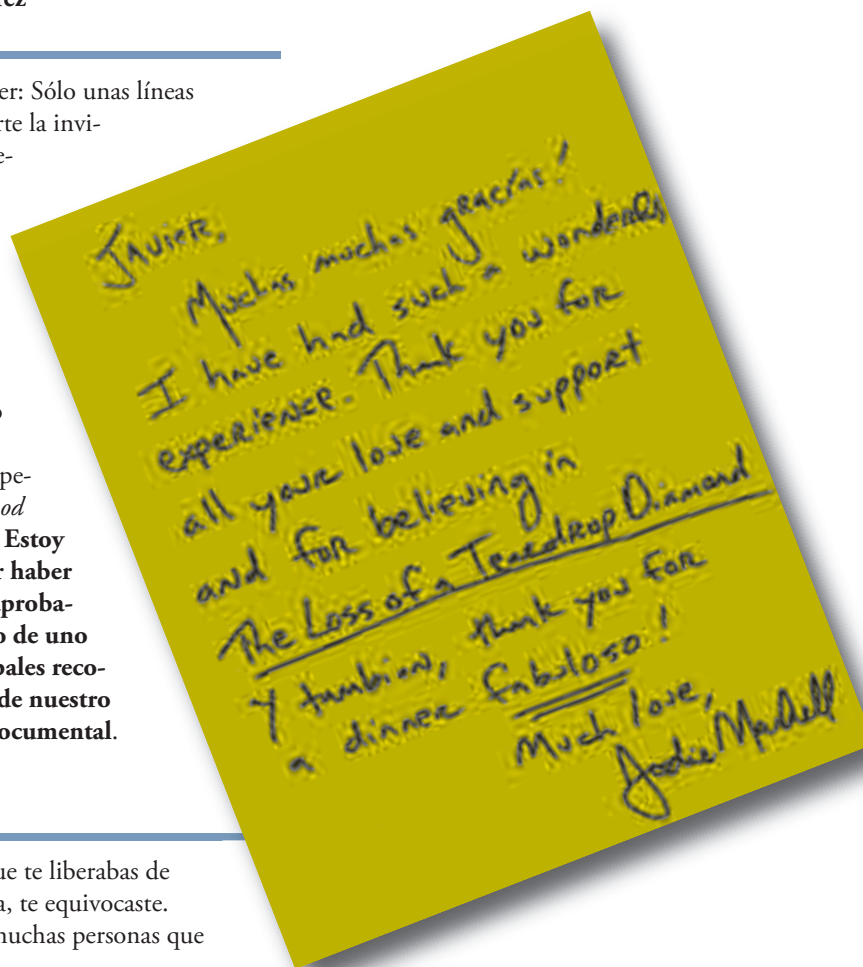 ez
er: Sólo unas líneas
rte la invi-
e-
o
pe-
od
Estoy
r haber
proba-
o de uno
pales reco-
de nuestro
ocumental.
ue te liberabas de
a, te equivocaste.
muchas personas que
Javier,
Muchas muchas gracias!
I have had such a wonderful
experience. Thank you for
all your love and support
and for believing in
The Loss of a Teardrop Diamond
Y tambien, thank you for
a dinner fabuloso!
Much love,
Jodie Markell